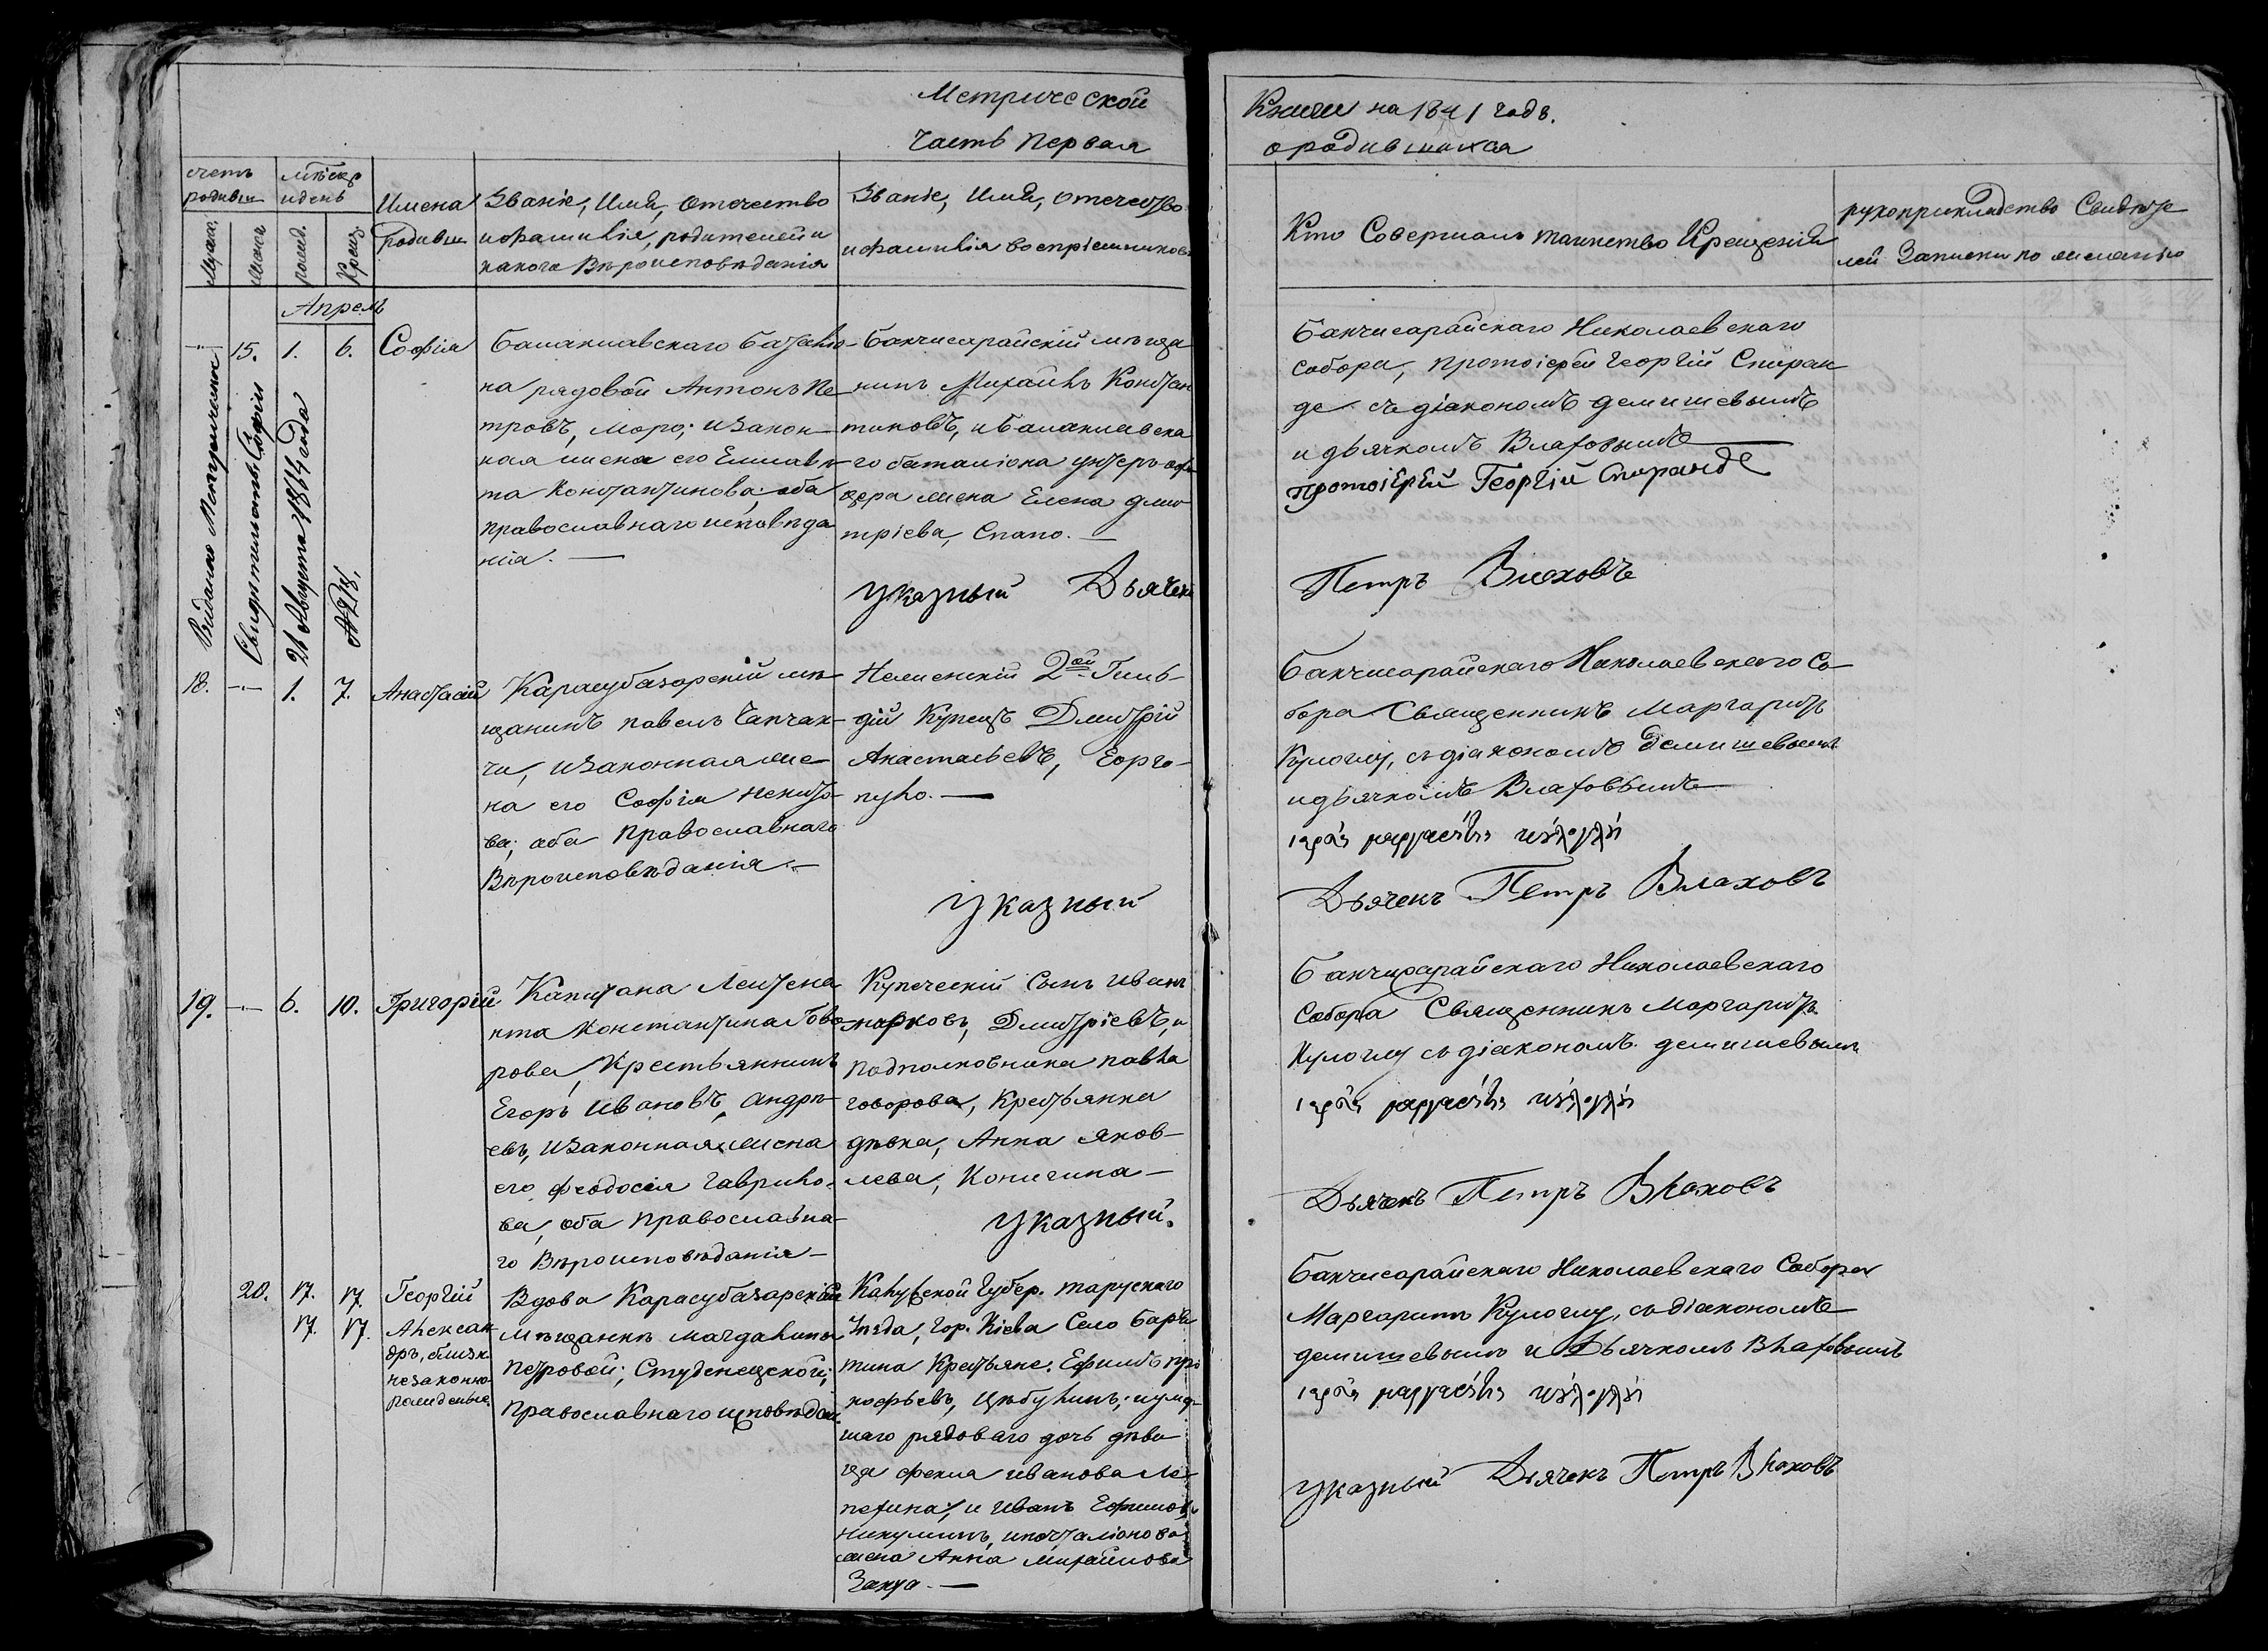 Метрической
Часть Первая
Книги на 1841 годъ.
о родившихся
счетъ родивш
мѣсяц и день
Мужеск.
Женск.
рожд.
Крещ.
Имена родивш
Званіе, Имя, Отечество
и фамилія, родителей и
какого Вѣроисповѣданія
Званіе, Имя, Отечество
и фамилія воспріемниковъ
Кто Совершалъ таинство Крещенія
рукоприкладство Свидѣте
лей Записки по желанью
Апрель
15. 1. 6. Софія
Выдано Метрическое
Свидѣтельство Софіи
21 Августа 1864 года
№ 218.
Балаклавскаго баталіо-
на рядовой Антонъ Пе
тровъ, Моро; и закон
ная жена его Елисаве
та Константинова; оба
православнаго исповѣда
нія. —
Бахчисарайскій мѣща
нинъ Михаилъ Констан
тиновъ, и Балаклавска
го баталіона унтеръ-офи
цера жена Елена Дми
тріева, Спапо. —
Указный Дьячекъ
Бахчисарайскаго Николаевскаго
Собора, протоіерей Георгій Спиран
де съ діакономъ Демишевымъ
и дьячкомъ Влаховымъ
протоіерей Георгій Спиранде
Петръ Влаховъ
18. 1. 7. Анастасій
Карасубазарскій мѣ
щанинъ Павелъ Чапчак-
чи, и законная же-
на его Софія
оба Православнаго
Вѣроисповѣданія —
2ой Гиль-
діи Купецъ Дмитрій
Анастасьевъ, Еорго-
пуло. —
Указный
Бахчисарайскаго Николаевскаго Со-
бора Священникъ Маргаритъ
Кулоглу, съ діакономъ Демишевымъ
и дьячкомъ Влаховымъ
Дьячекъ Петръ Влаховъ
19. 6. 10. Григорій
Капитана Лейтена
нта Константина Гово
рова, Крестьянинъ
Егоръ Ивановъ, Андре
евъ, и законная жена
его Феодосія Гаврило-
ва, оба православна-
го Вѣроисповѣданія —
Купеческій Сынъ Иванъ
Марковъ, Дмитріевъ, и
подполковника Павла
Говорова, Крестьянка
дѣвка, Анна Яков-
лева, Коничина —
Указный.
Бахчисарайскаго Николаевскаго
Собора Священникъ Маргаритъ
Кулоглу съ діакономъ Демишевымъ
Дьячекъ Петръ Влаховъ
20. 17. 17. Георгій
17. 17. Александръ, близн.
незаконно
рожденные
Вдова Карасубазарской
мѣщанки Магдалины
Петровой; Студенецкой;
православнаго исповѣдан.
Калужской Губер. Тарускаго
Уѣзда, Гор. Кіева Село Баря
тина Крестьяне. Ефимъ про
кофьевъ, Цыбулинъ; и умер
шаго рядоваго дочь дѣви
ца Фекла Иванова Ле-
пехина; и Иванъ Ефимовъ
Никулинъ, и почталіонова
жена Анна Михайлова
Закуа. —
Бахчисарайскаго Николаевскаго Собора
Маргаритъ Кулоглу, съ діакономъ
Демишевымъ и Дьячкомъ Влаховымъ
Указный Дьячекъ Петръ Влаховъ